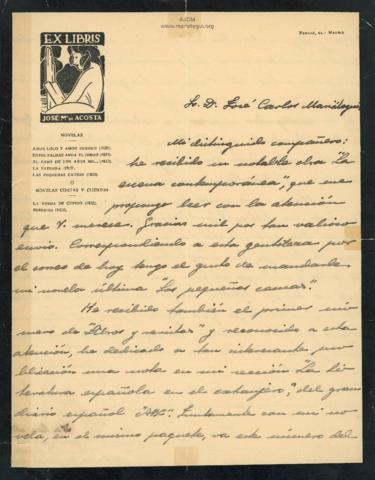 AJCM
www.mariategui.org
EX LIBRIS
JOSE Mª DE ACOSTA
NOVELAS
AMOR LOCO Y AMOR CUERDO
LAS PEQUEÑAS CAUSAS
NOVELAS CORTAS Y CUENTOS
MADRID
Sr. D. José Carlos Mariátegui
Mi distinguido compañero:
he recibido su notable obra "La
escena contemporánea", que me
propongo leer con la atención
que V. merece. Gracias mil por tan valioso
envío. Correspondiendo a esta gentileza por
el correo de hoy tengo el gusto de mandarle
mi novela última "Las pequeñas causas".
He recibido también el primer nú-
mero de "Libros y revistas" y reconocido a esta
atención, he dedicado a tan interesante pu-
blicación una nota en mi sección "La li-
teratura española en el extranjero", del gran
diario español "ABC". Juntamente con mi no-
vela, en el mismo paquete, va este número del